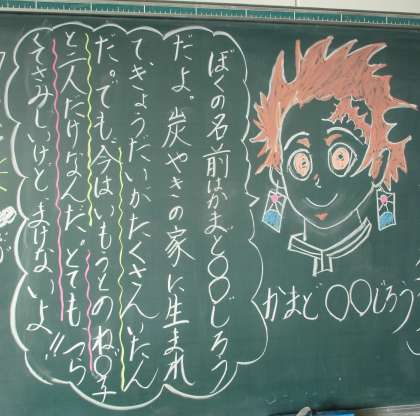 ぼくの名前はかまど〇〇じろう
だよ。炭やきの家に生まれ
てきょうだいがたくさんいたん
だ。でも今はいもうとのね〇子
と二人だけなんだ。とてもつら
くさみしいけどまけないよ!!
かまど〇〇じろう